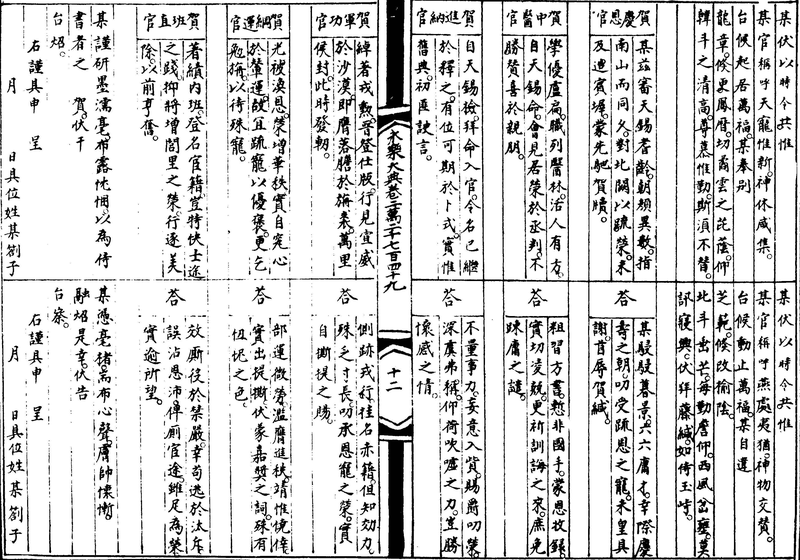 某伏以時令共惟
某官稱呼天寵惟新神休咸集
台候起居萬福某奉别
龍章倏更鳳曆切裔雲之芘蔭仰
韓斗之清高尊慕惟勤斯湏不替
賀慶恩官
某兹審天錫耆齡朝頒異數指
南山而同久對北闕以疏榮未
及逓賓墀蒙先馳賀牘
賀中醫官
學優盧扁職列醫林活人有方
自天錫命會見居榮於丞判不
勝賛喜於親朋
賀進納官
自天錫檢拜命入官令名已繼
於釋之有位可期於卜式實惟
舊典初匪諛言
某伏以時令共惟
某官稱呼燕處夷猶神物交贊
台候動止萬福某自違
芝範倏改榆陰
北斗出芒每動詹仰西風岔壅莫
訊寢興伏拜藤緘如倚玉峙
荅
某駸駸暮景六六庸才幸際慶
壽之朝叨受疏恩之寵未皇具
謝首辱賀緘
荅
粗習方書慙非國手蒙恩收録
實切凌兢更祈訓誨之家庶免
踈庸之譴
荅
不量事力妄意入貲賜爵叨榮
深虞弗稱仰荷吹噓之力豈勝
懷感之情
永樂大典卷二萬二千七百四十九
十二
賀軍功官
綽著戎勲晉登仕版行見宣威
於沙漠即膺落膽於旃裘萬里
侯封此時發軔
賀綱運官
光被渙恩榮增華秩實自完心
於輦運故且疏寵以優褒更乞
勉旃以待殊寵
賀班直官
著績内班登名宦籍豈特快士途
之踐抑將增閭里之榮行逐美
除以前亨舊
某謹研墨濡毫布露忱悃以為侍
書者之 賀伏干
台炤
右謹具申 呈
月 日具位姓某劄子
荅
側跡戎行挂名赤籍但知効力
殊乏寸長叨承恩寵之榮實
自撕提之賜
荅
部運微勞濫膺進秩靖惟僥倖
實出提撕伏蒙嘉奬之詞殊有
忸怩之色
荅
效廝役於禁嚴幸苟逃於汰斥
誤沾恩沛俾厠官途雖足為榮
實逾所望
某憑毫楮耑布心聲膚帥慺慚
融炤是幸伏告
台察
右謹具申 呈
月 日具位姓某劄子